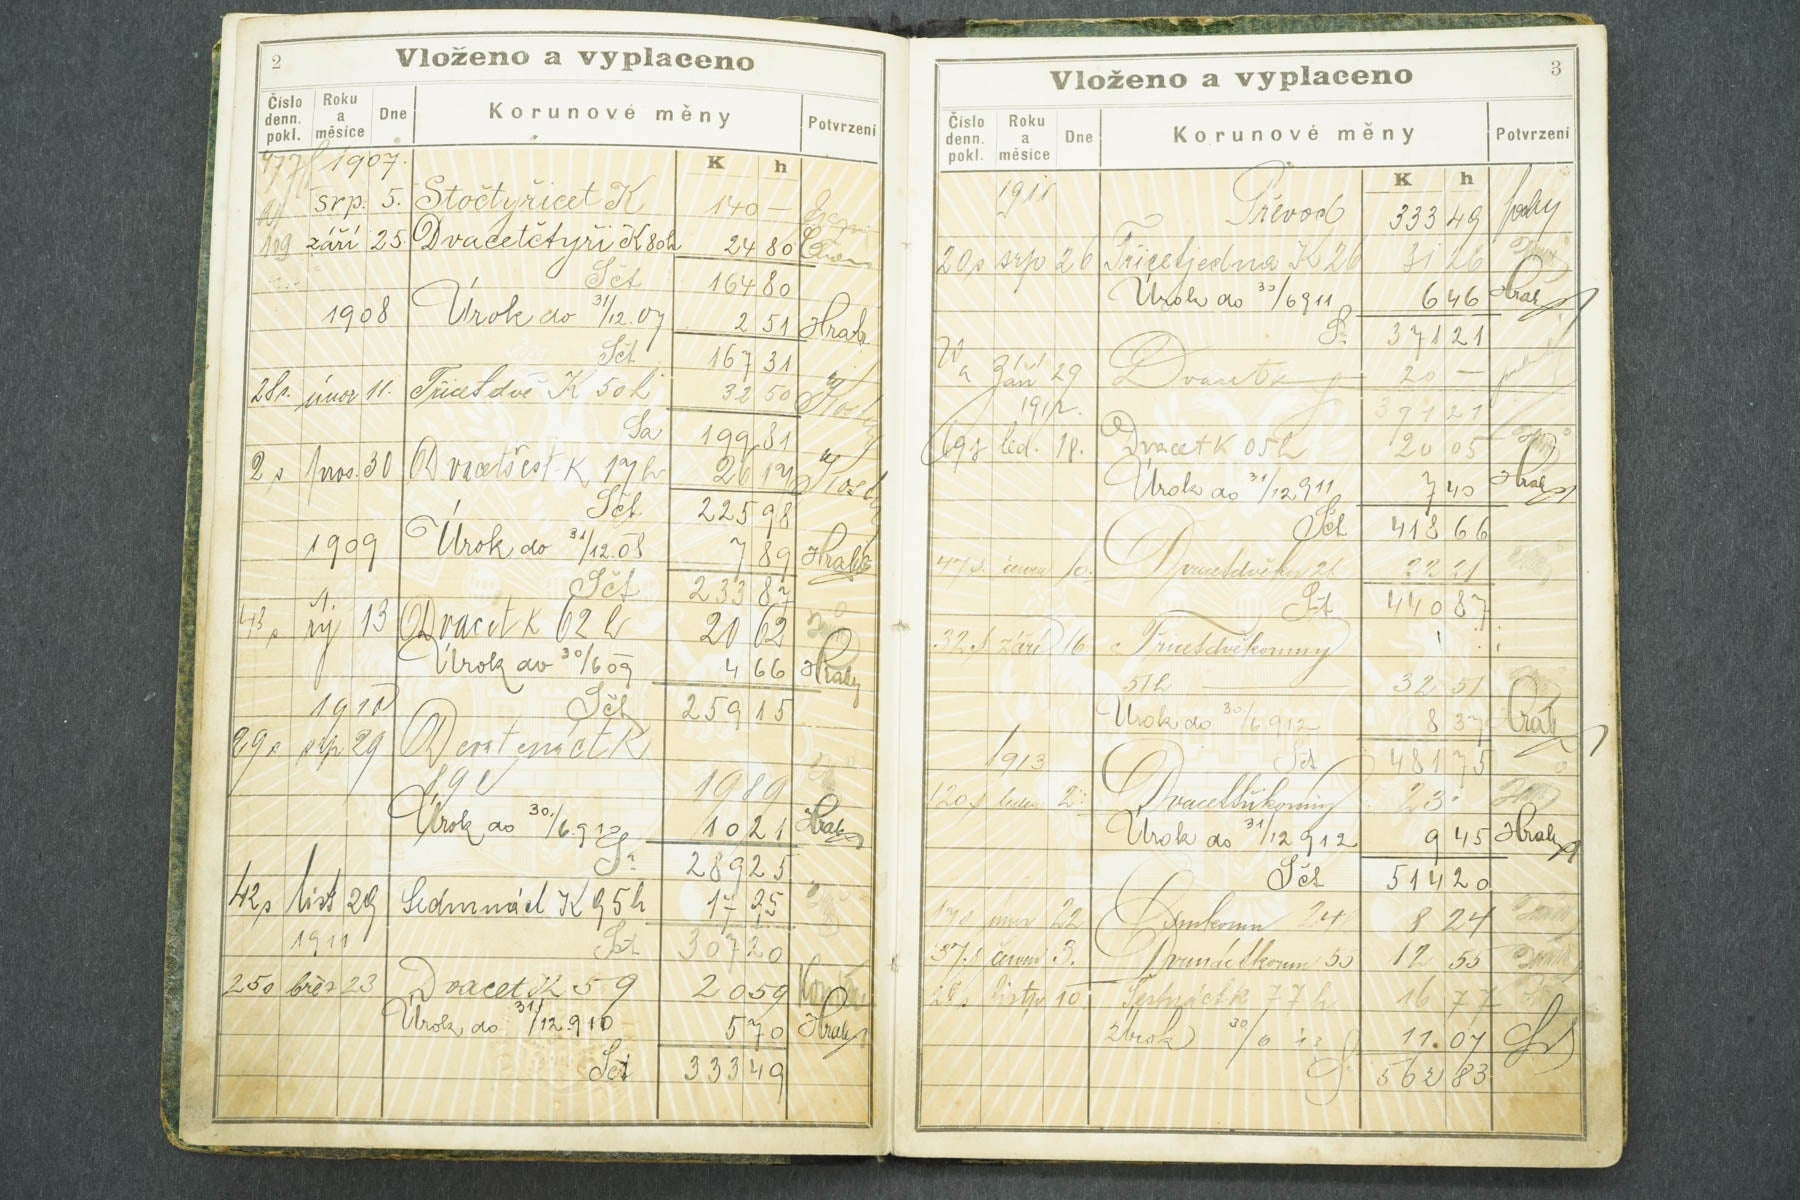 2
Vloženo a vyplaceno
Číslo denn. pokl. Roku a měsíce Dne Korunové měny Potvrzení
K h
1907.
srp. 5. Stočtyřicet K 140 —
109 září 25. Dvacetčtyři K 80h 24 80
Sčt 164 80
1908 Úrok do 31/12.07 2 51 Hrab
Sčt 167 31
únor 11. Třicetdvě K 50h 32 50
Sa 199 81
2 s pros. 30 Dvacetšest K 17h 26 17
Sčt 225 98
1909 Úrok do 31/12.08 7 89
Sčt 233 87
13 Dvacet K 62 h 20 62
Úrok do 30/6 09 4 66
1910 Sčt 259 15
29 s srp 29 Devatenáct K
19 89
Úrok do 30./6.910 10 21
289 25
42 s list 29 Sedmnáct K 95h 17 95
1911 Sčt 307 20
25 s břez 23 Dvacet K 59 20 59
Úrok do 31/12 910 5 70
Sčt 333 49
3
Vloženo a vyplaceno
Číslo denn. pokl. Roku a měsíce Dne Korunové měny Potvrzení
K h
1911 Převod 333 49
20 s srp 26 Třicetjedna K 26 31 26
Úrok do 30/6 911 6 46
371 21
29 Dvacet K 20 —
1912. 391 21
led. 18. Dvacet K 05 h 20 05
Úrok do 31/12 911 7 40
Sčt 418 66
47 s. červen 10. 22 21
Sčt 440 87
32 s září 16. Třicetdvěkoruny
51 h 32 51
Úrok do 30/6 912 8 37
1913 Sčt 481 75
120 s leden 2. Dvacettřikoruny 23 -
Úrok do 31/12 912 9 45
Sčt 514 20
únor 22 24 8 24
37 s červen 3. 55 12 55
listp. 10. Šestnáct K 77 h 16 77
Úrok 30/6 13 11.07
562 83